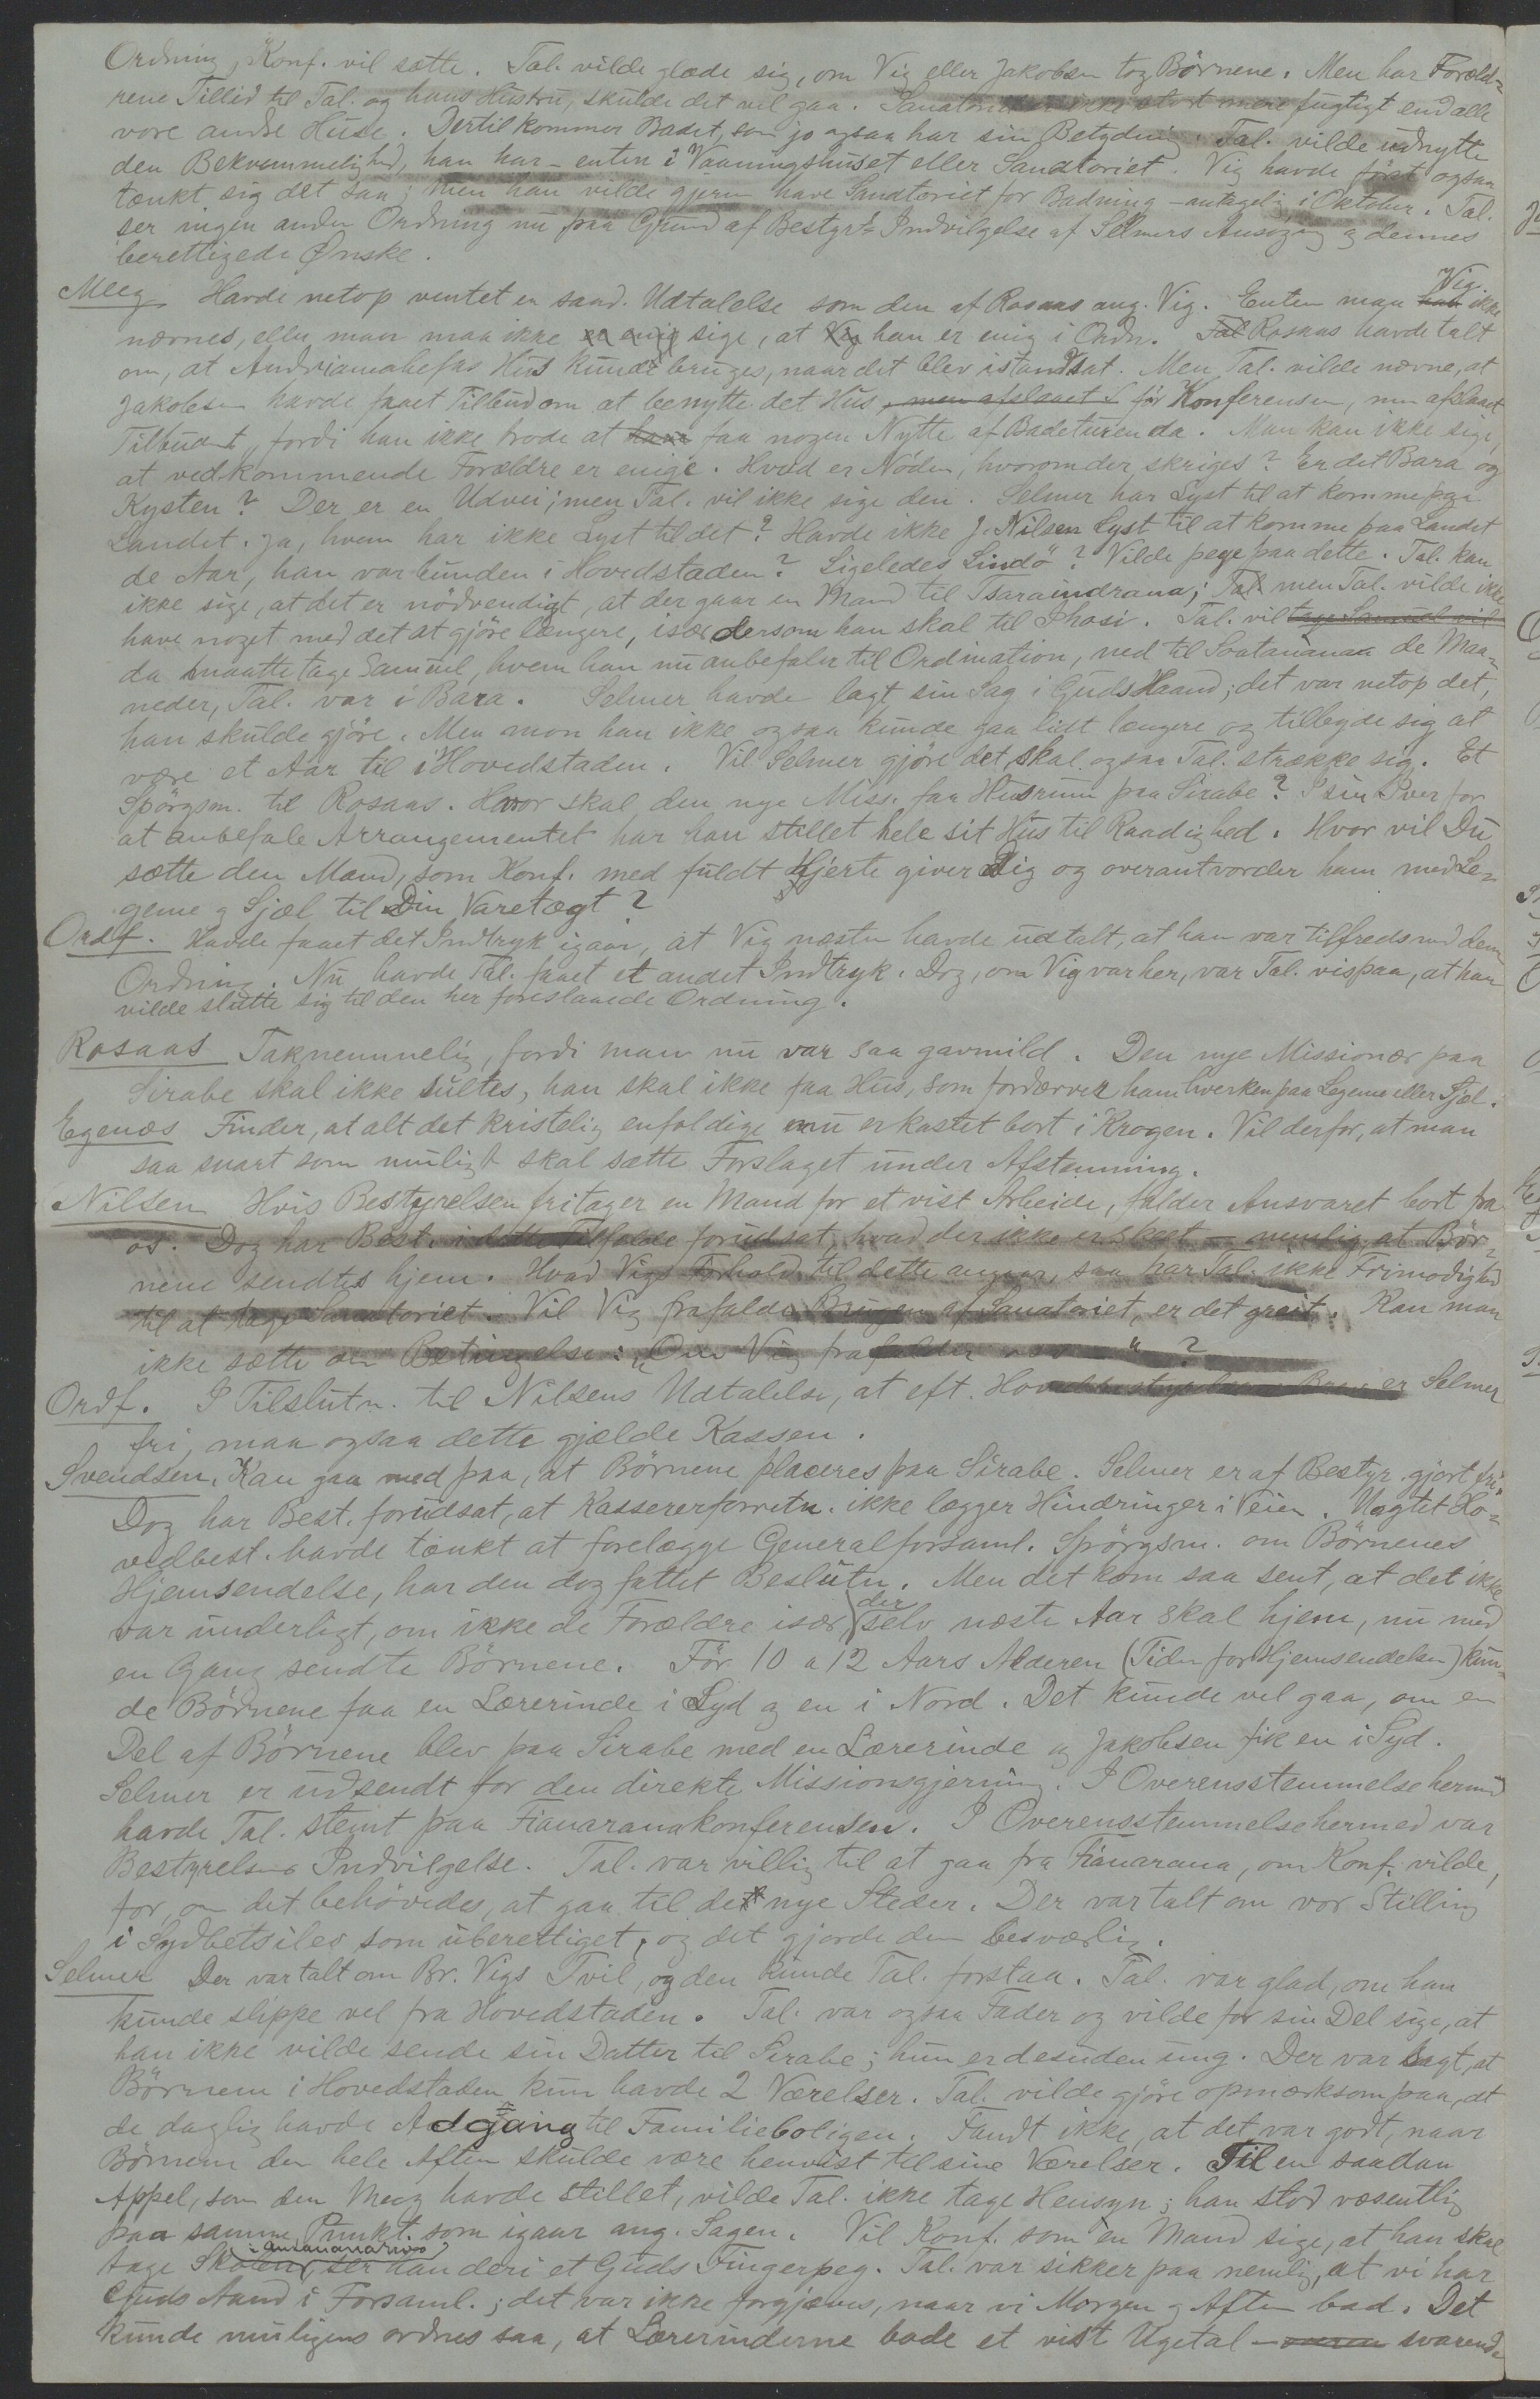 Ordning, Konf. vil sætte. Tal. vilde glæde sig, om Vig eller Jakobsen tog Börnene. Men har Foræld-
rene Tillid til Tal. og hans Hustru, skulde det vel gaa. Sanatoriet er ikke stort mere fugtigt end alle
vore andre Huse. Dertil kommer Badet, som jo ogsaa har sin Betydning. Tal. vilde udnytte
den Bekvemmelighed, han har – enten i Vaaningshuset eller Sanatoriet. Vig havde først ogsaa
tænkt sig det saa; men han vilde gjerne have Sanatoriet for Badning – antagelig i Oktober. Tal.
ser ingen anden Ordning nu paa Grund af Bestyr's Indvilgelse af Selmers Ansögning og dennes
berettigede Ønske.
Meeg Havde netop ventet en saad. Udtalelse som den af Rosaas ang. Vig. Enten maa han Vig. ikke
nævnes, eller man maa ikke er enig sige, at Vig han er enig i Ordn. Tal Rosaas havde talt
om, at Andriamahefas Hus kunde bruges, naar det blev istandsat. Men Tal. vilde nævne, at
Jakobsen havde faaet Tilbud om at benytte det Hus, men afslaaet för Konferensen, men afslaaet
Tilbudet, fordi han ikke trode at have faa nogen Nytte af Badeturen da. Man kan ikke sige,
at vedkommende Forældre er enige. Hvad er Nöden, hvorom der skriges? Er det Bara og
Kysten? Der er en Udvei; men Tal. vil ikke sige den. Selmer har Lyst til at komme paa
Landet. Ja, hvem har ikke Lyst til det? Havde ikke J. Nilsen Lyst til at komme paa Landet
de Aar, han var bunden i Hovedstaden? Ligeledes Lindö? Vilde pege paa dette. Tal. kan
ikke sige, at det er nödvendigt, at der gaar en Mand til Tsaraindrana; Tal men Tal. vilde ikke
have noget med det at gjöre længere, især dersom han skal til Ihosi. Tal. vil tage Samuel vil
da maatte tage Samuel, hvem han nu anbefaler til Ordination, ned til Soatanana de Maa-
neder, Tal. var i Bara. Selmer havde lagt sin Sag i Guds Haand; det var netop det,
han skulde gjöre. Men mon han ikke ogsaa kunde gaa lidt længere og tilbyde sig at
være et Aar til i Hovedstaden. Vil Selmer gjöre det, skal ogsaa Tal. strække sig. Et
Spörgsm. til Rosaas. Hvor skal den nye Miss. faa Husrum paa Sirabe? I sin Iver for
at anbefale Arrangementet har han stillet hele sit Hus til Raadighed. Hvor vil Du
sætte den Mand, som Konf. med fuldt Hjerte giver Dig og overantvorder ham med Le-
geme og Sjæl til Din Varetægt?
Ordf. Havde faaet det Indtryk igaar, at Vig næsten havde udtalt, at han var tilfreds med denne
Ordning. Nu havde Tal. faaet et andet Indtryk. Dog, om Vig var her, var Tal. vis paa, at han
vilde slutte sig til den her foreslaaede Ordning.
Rosaas Taknemmelig, fordi man nu var saa gavmild. Den nye Missionær paa
Sirabe skal ikke sultes, han skal ikke faa Hus, som fordærver ham hverken paa Legeme eller Sjæl.
Egenæs Finder, at alt det kristelig enfoldige nu er kastet bort i Krogen. Vil derfor, at man
saa snart som muligt skal sætte Forslaget under Afstemning.
Nilsen Hvis Bestyrelsen fritager en Mand for et vist Arbeide, falder Ansvaret bort fra
os. Dog har Best. i dette Tilfælde forudsat, hvad der ikke er skeet – nemlig, at Bör-
nene sendtes hjem. Hvad Vigs Forhold til dette angaar, saa har Tal. ikke Frimodighed
til at tage Sanatoriet. Vil Vig frafalde Brugen af Sanatoriet, er det greit. Kan man
ikke sætte en Betingelse: „Om Vig frafalder o. s. v." ?
Ordf. I Tilslutn. til Nilsens Udtalelse, at eft. Hovedbestyrelsens Brev er Selmer
fri, maa ogsaa dette gjælde Kassen.
Svendsen. Kan gaa med paa, at Börnene placeres paa Sirabe. Selmer er af Bestyr. gjort fri.
Dog har Best. forudsat, at Kassererforretn. ikke lægger Hindringer i Veien. Uagtet Ho-
vedbest. havde tænkt at forelægge Generalforsaml. Spörgsm. om Börnenes
Hjemsendelse, har den dog fattet Beslutn. Men det kom saa sent, at det ikke
var underligt, om ikke de Forældre især, der selv næste Aar skal hjem, nu med
en Gang sendte Börnene. För 10 a 12 Aars Alderen (Tiden for Hjemsendelsen) kun-
de Börnene faa en Lærerinde i Syd og en i Nord. Det kunde vel gaa, om en
Del af Börnene blev paa Sirabe med en Lærerinde og Jakobsen fik en i Syd.
Selmer er udsendt for den direkte Missionsgjerning. I Overensstemmelse hermed
havde Tal. stemt paa Fianaranakonferensen. I Overensstemmelse hermed var
Bestyrelsens Indvilgelse. Tal. var villig til at gaa fra Fianarana, om Konf. vilde,
for, om det behövedes, at gaa til de nye Steder. Der var talt om vor Stilling
i Sydbetsileo som uberettiget, og det gjorde den besværlig.
Selmer Der var talt om Br. Vigs Tvil, og den kunde Tal. forstaa. Tal. var glad, om han
kunde slippe vel fra Hovedstaden. Tal. var ogsaa Fader og vilde for sin Del sige, at
han ikke vilde sende sin Datter til Sirabe; hun er desuden ung. Der var sagt, at
Börnene i Hovedstaden kun havde 2 Værelser. Tal. vilde gjöre opmærksom paa, at
de daglig havde Adgang til Familieboligen. Fandt ikke, at det var godt, naar
Börnene den hele Aften skulde være henvist til sine Værelser. Til en saadan
Appel, som den Meeg havde stillet, vilde Tal. ikke tage Hensyn; han stod væsentlig
paa samme Punkt som igaar ang. Sagen. Vil Konf. som en Mand sige, at han skal
tage Skolen i Antananarivo, ser han deri et Guds Fingerpeg. Tal. var sikker paa nemlig, at vi har
Guds Aand i Forsaml.; det var ikke forgjæves, naar vi Morgen og Aften bad. Det
kunde muligens ordnes saa, at Lærerinderne bade et vist Ugetal – svarende